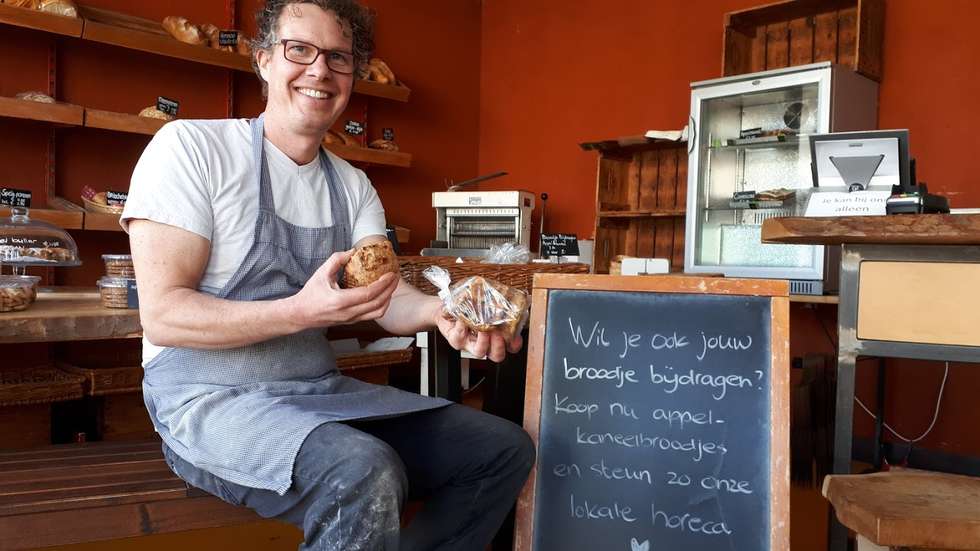 Wil je ook jouw
broodje bijdragen?
Koop nu appel-
kaneelbroodjes
en steun zo onze
lokale horeca
Je kan bij ons
alleen